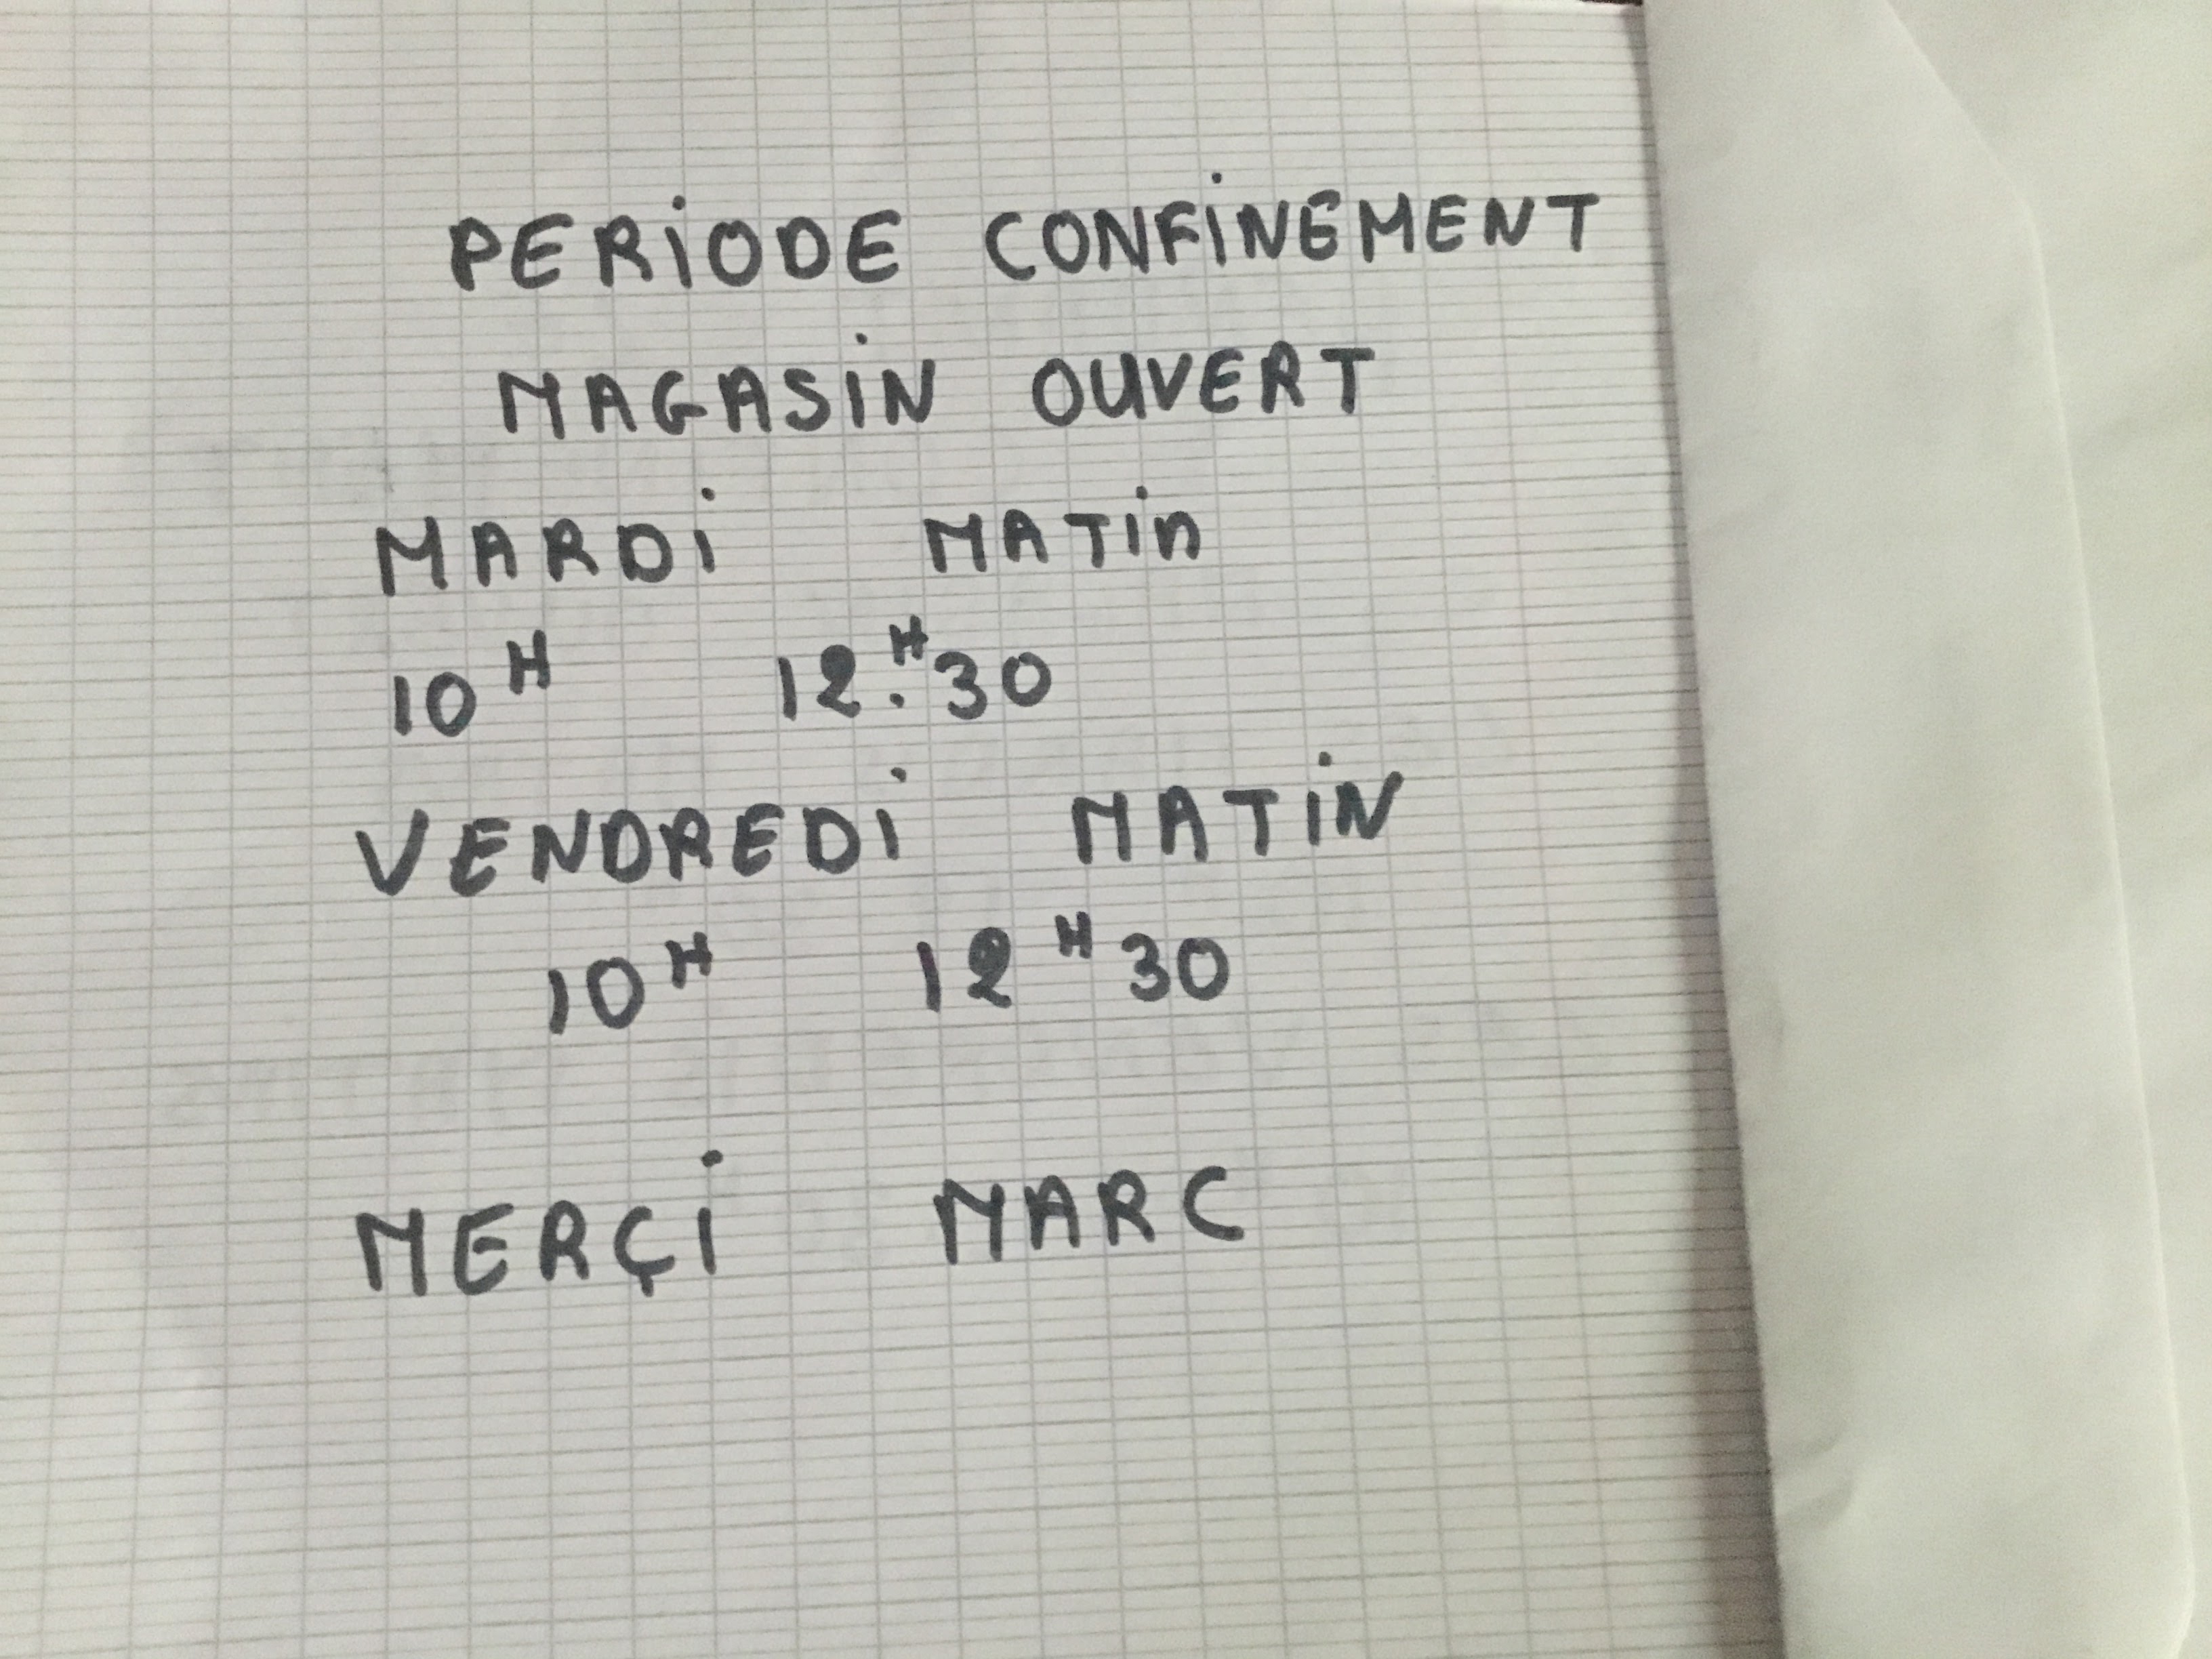 PERIODE CONFINEMENT
MAGASIN OUVERT
MARDI MATIN
10H 12H30
VENDREDI MATIN
10H 12H30
MERÇI MARC